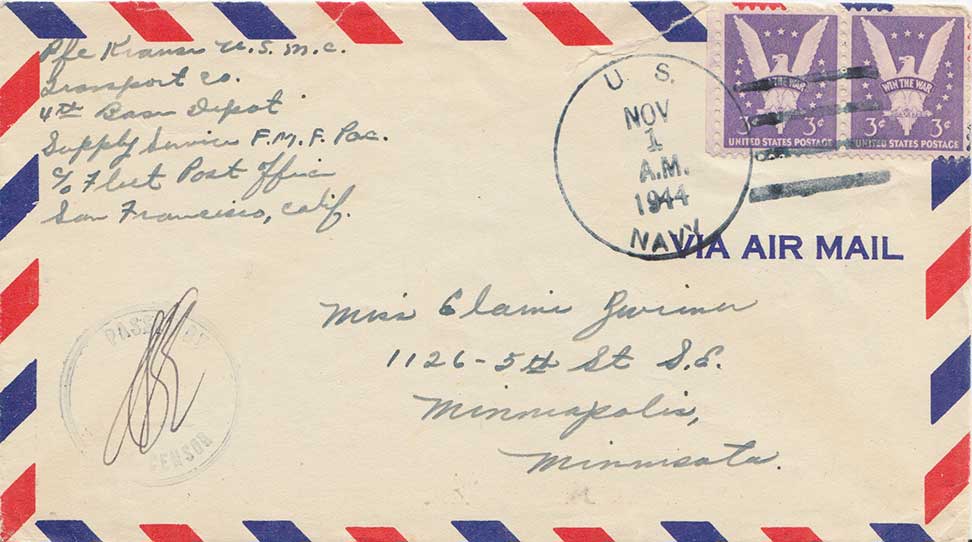 Pfc Kraus U.S.M.C.
Transport Co.
4th Base Depot
Supply Service F.M.F. Pac.
c/o Fleet Post Office
San Francisco, Calif.
U. S.
NOV
1
A.M.
1944
NAVY
WIN THE WAR
3¢ 3¢
UNITED STATES POSTAGE
WIN THE WAR
3¢ 3¢
UNITED STATES POSTAGE
VIA AIR MAIL
Miss Elaine
1126-5th St S.E.
Minneapolis,
Minnesota.
PASSED BY
CENSOR